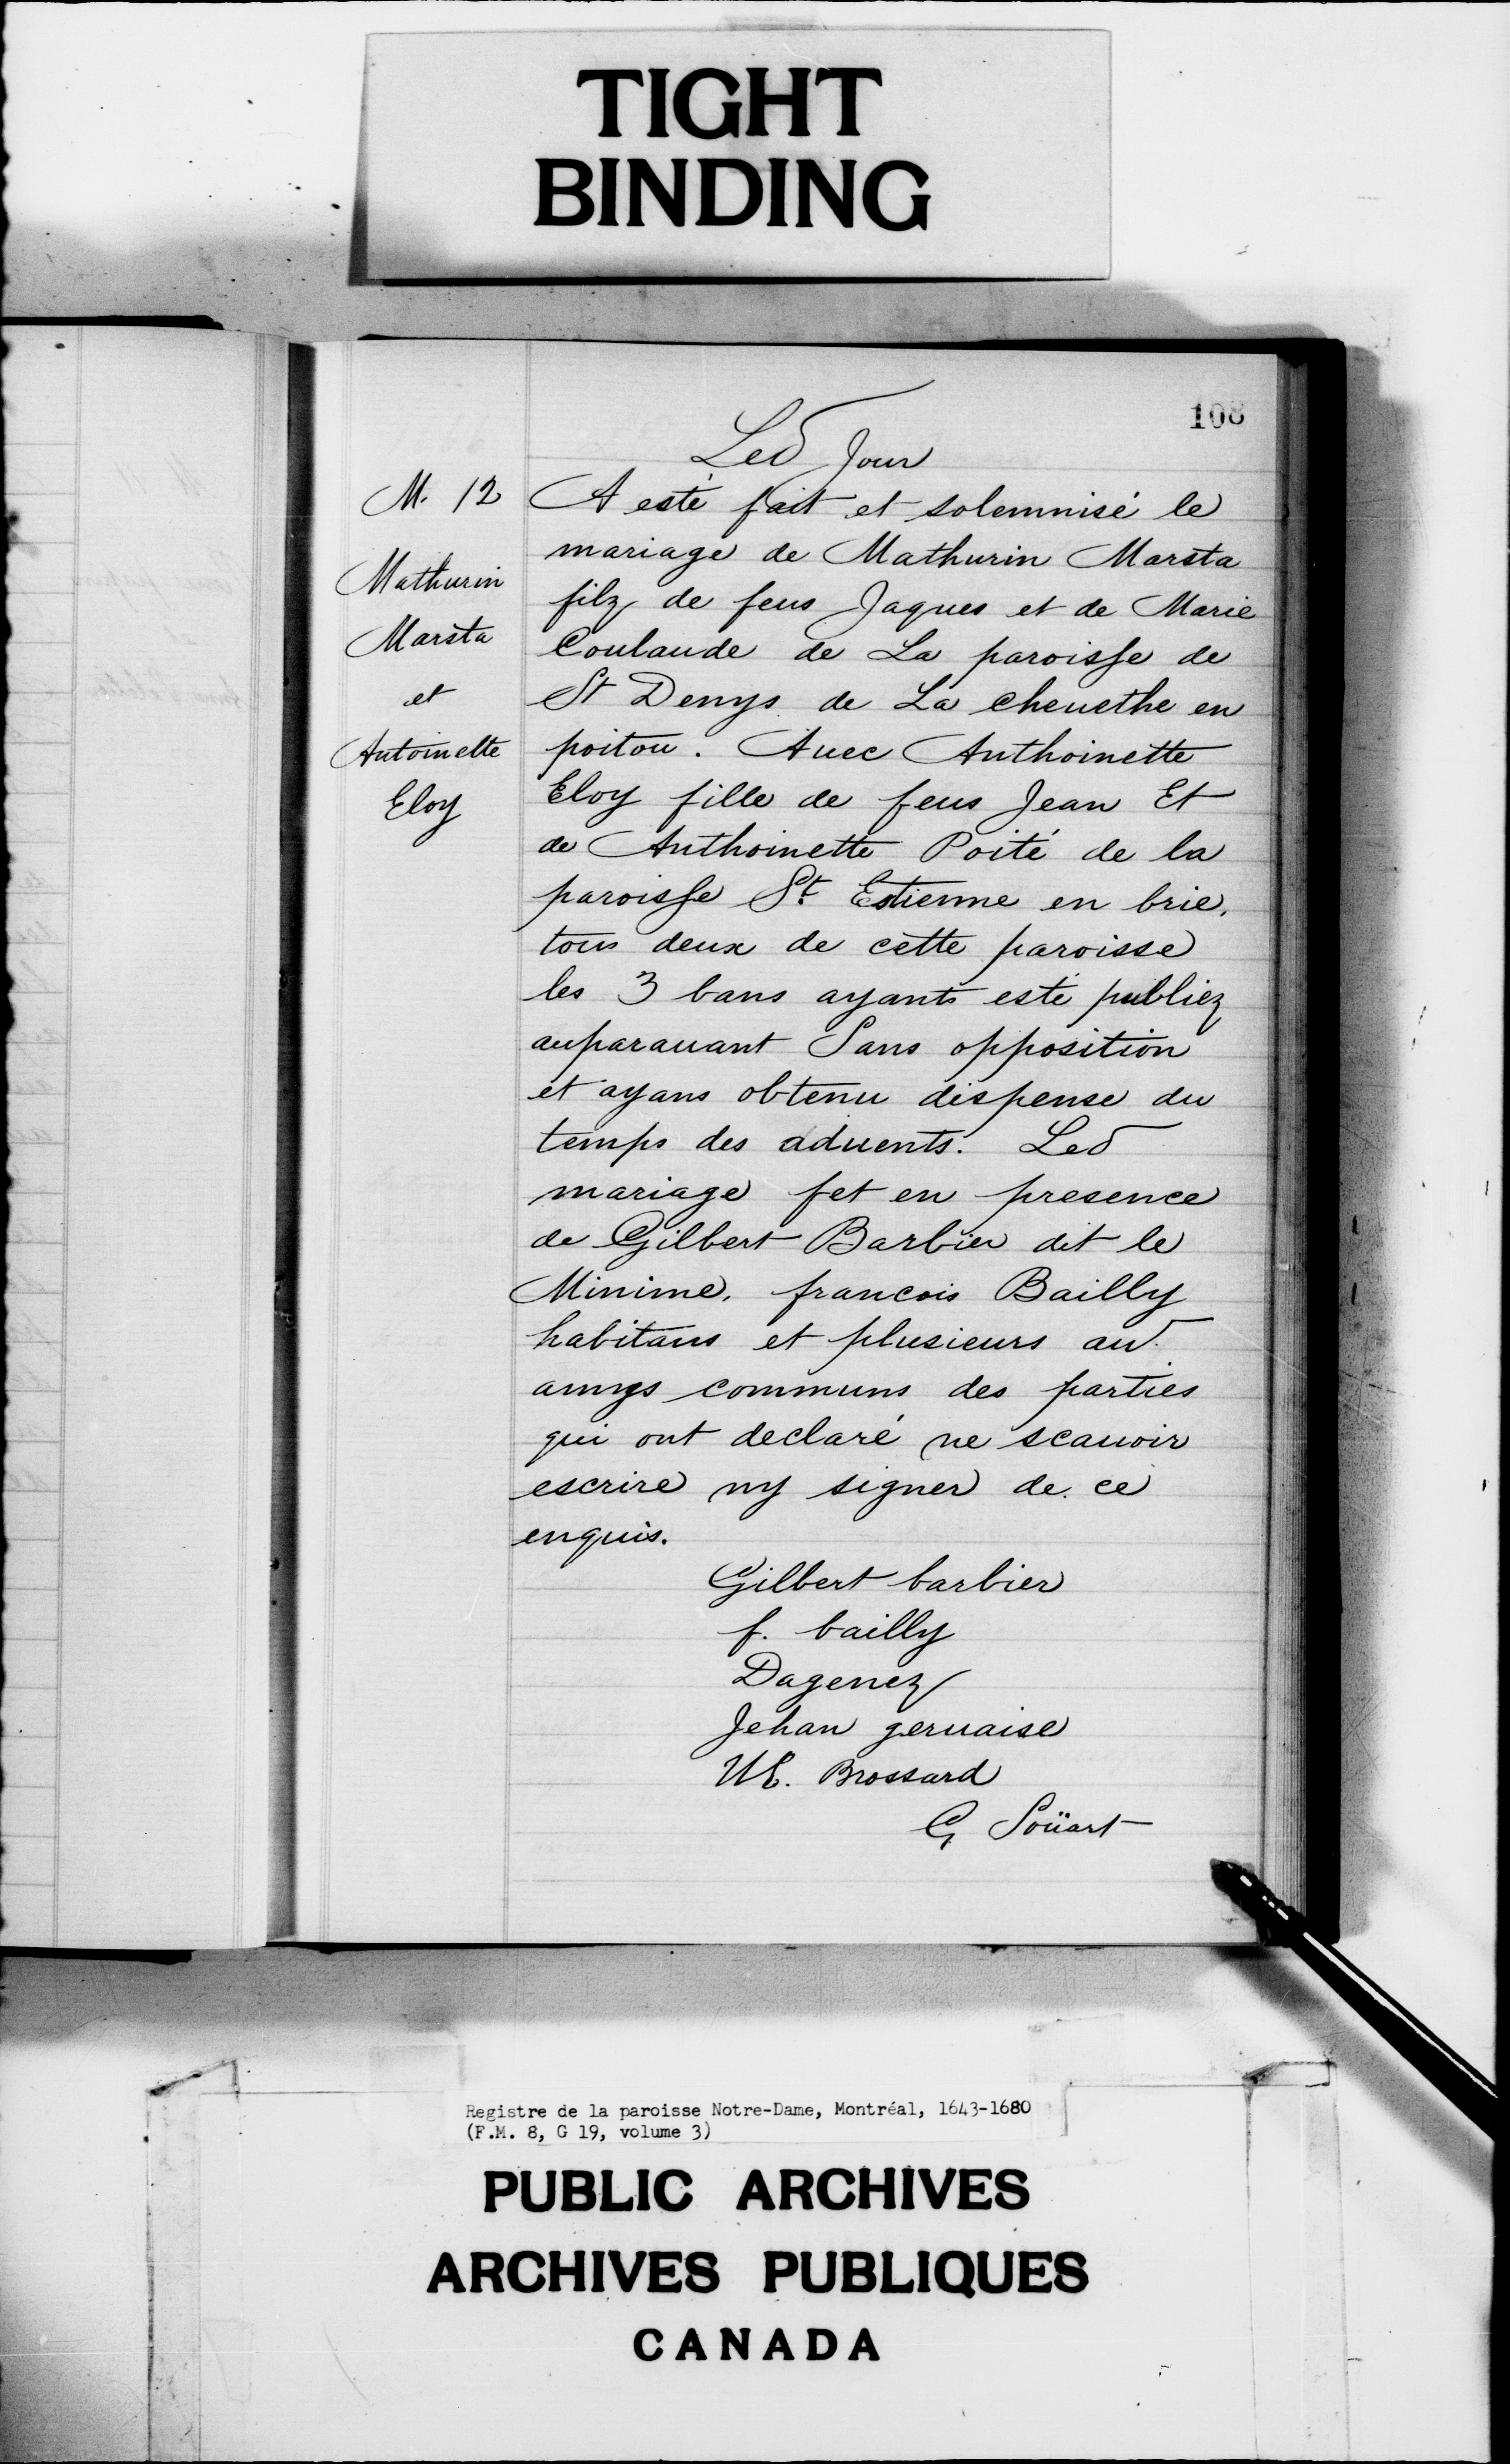 TIGHT
BINDING
108
Led Jour
M. 12
Mathurin
Marsta
et
Antoinette
Eloy
A esté fait et solemnisé le
mariage de Mathurin Marsta
filz de feus Jaques et de Marie
Coulaude de La paroisse de
St Denys de La cheuethe en
poitou. Auec Anthoinette
Eloy fille de feus Jean Et
de Anthoinette Poité de la
paroisse St. Estienne en brie,
tous deux de cette paroisse
les 3 bans ayants esté publiez
auparauant Sans opposition
et ayans obtenu dispense du
temps des aduents. Led
mariage fet en presence
de Gilbert Barbier dit le
Minime, francois Bailly
habitans et plusieurs aut
amys communs des parties
qui ont declaré ne scauoir
escrire ny signer de ce
enquis.
Gilbert barbier
f. bailly
Dagenez
Jehan geruaise
UE. Brossard
G Soüart
Registre de la paroisse Notre-Dame, Montréal, 1643-1680
(F.M. 8, G 19, volume 3)
PUBLIC ARCHIVES
ARCHIVES PUBLIQUES
CANADA